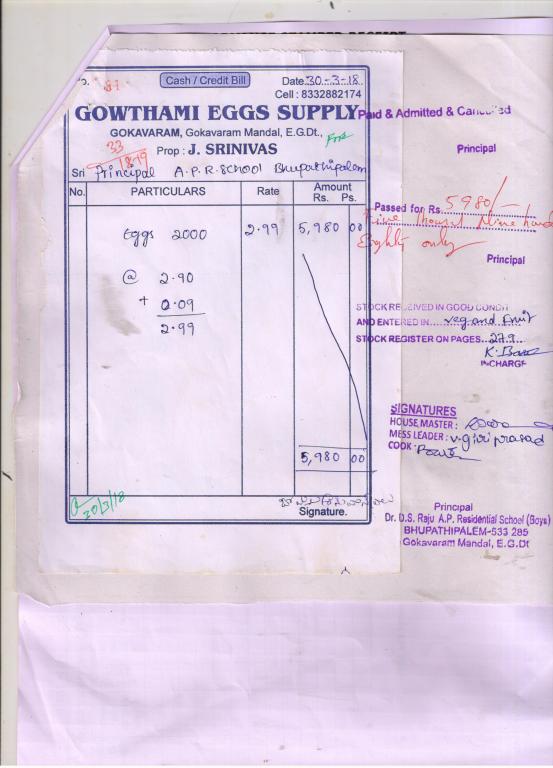 Cash / Credit Bill
Date 30-3-18
Cell : 8332882174
GOWTHAMI EGGS SUPPLY
GOKAVARAM, Gokavaram Mandal, E.G.Dt.,
33
18-19
Prop : J. SRINIVAS
Sri Principal A.P.R. School Bhupathipalem
No. PARTICULARS Rate Amount
Rs. Ps.
Eggs 2000 2.99 5,980 00
@ 2.90
+ 0.09
2.99
5,980 00
Signature.
Paid & Admitted &
Principal
Passed for Rs. 5980/-
Eighty only
Principal
STOCK RECEIVED IN GOOD
AND ENTERED IN veg and fruit
STOCK REGISTER ON PAGES 279
SIGNATURES
HOUSE MASTER :
MESS LEADER : v. giri prasad
COOK :
Principal
Dr. D.S. Raju A.P. Residential School (Boys)
BHUPATHIPALEM-533 285
Gokavaram Mandal, E.G.Dt